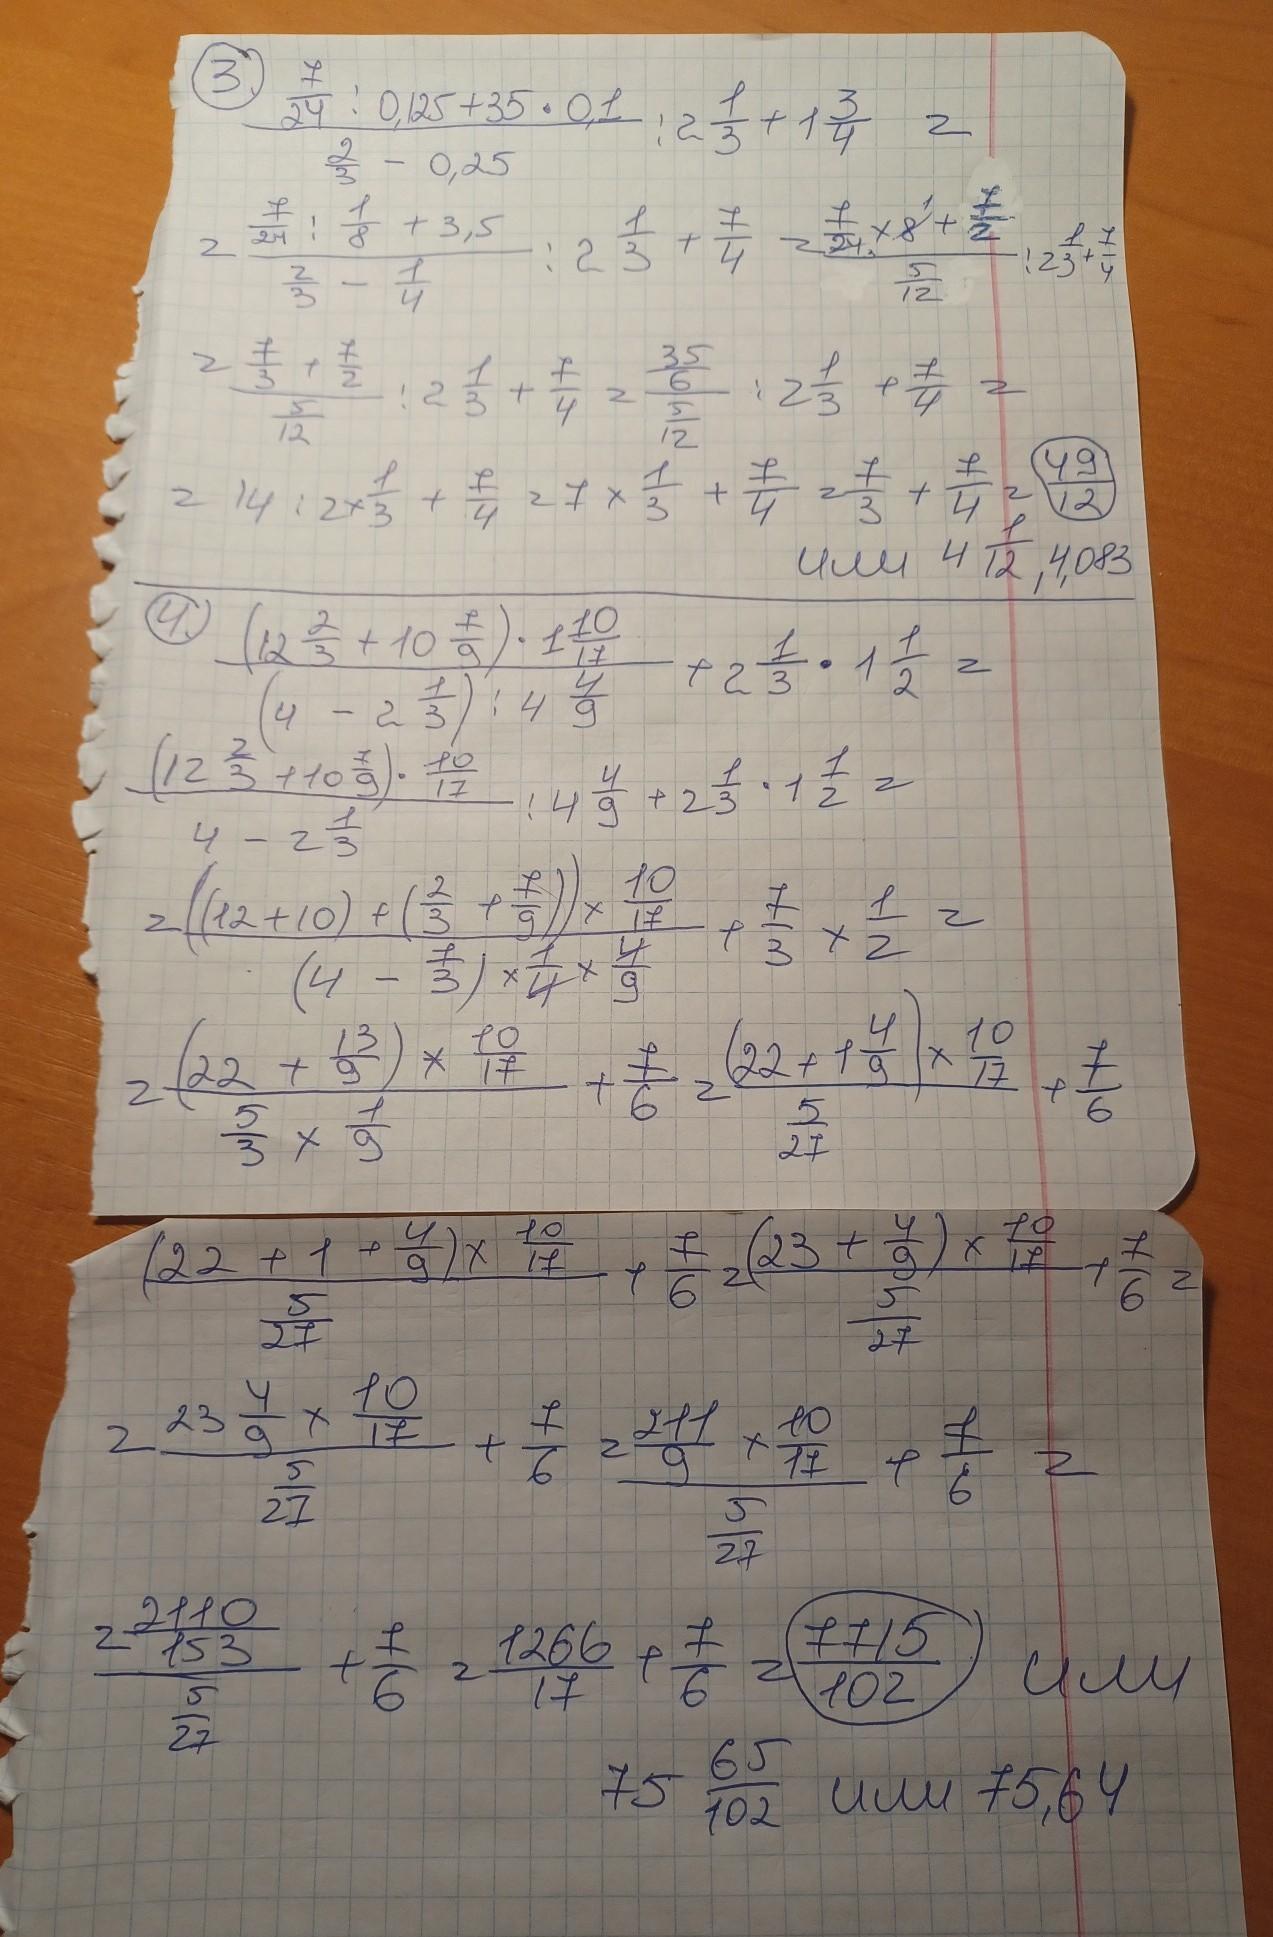 3. (7/24 : 0,125+35 · 0,1)/(2/3 - 0,25) : 2 1/3 + 1 3/4 =
= (7/24 : 1/8 + 3,5)/(2/3 - 1/4) : 2 1/3 + 7/4 = (7/24 × 8 + 7/2)/(5/12) : 2 1/3 + 7/4
= (7/3 + 7/2)/(5/12) : 2 1/3 + 7/4 = (35/6)/(5/12) : 2 1/3 + 7/4 =
= 14 : 2 × 1/3 + 7/4 = 7 × 1/3 + 7/4 = 7/3 + 7/4 = 49/12
или 4 1/12, 4,083
4. ((12 2/3 + 10 7/9) · 1 10/17)/((4 - 2 1/3) : 4 4/9) + 2 1/3 · 1 1/2 =
((12 2/3 + 10 7/9) · 10/17)/(4 - 2 1/3) : 4 4/9 + 2 1/3 · 1 1/2 =
= (((12 + 10) + (2/3 + 7/9)) × 10/17)/((4 - 7/3) × 1/4 × 4/9) + 7/3 × 1/2 =
= ((22 + 13/9) × 10/17)/(5/3 × 1/9) + 7/6 = ((22 + 1 4/9) × 10/17)/(5/27) + 7/6
((22 + 1 + 4/9) × 10/17)/(5/27) + 7/6 = ((23 + 4/9) × 10/17)/(5/27) + 7/6 =
= (23 4/9 × 10/17)/(5/27) + 7/6 = (211/9 × 10/17)/(5/27) + 7/6 =
= (2110/153)/(5/27) + 7/6 = 1266/17 + 7/6 = 7715/102 или
75 65/102 или 75,64